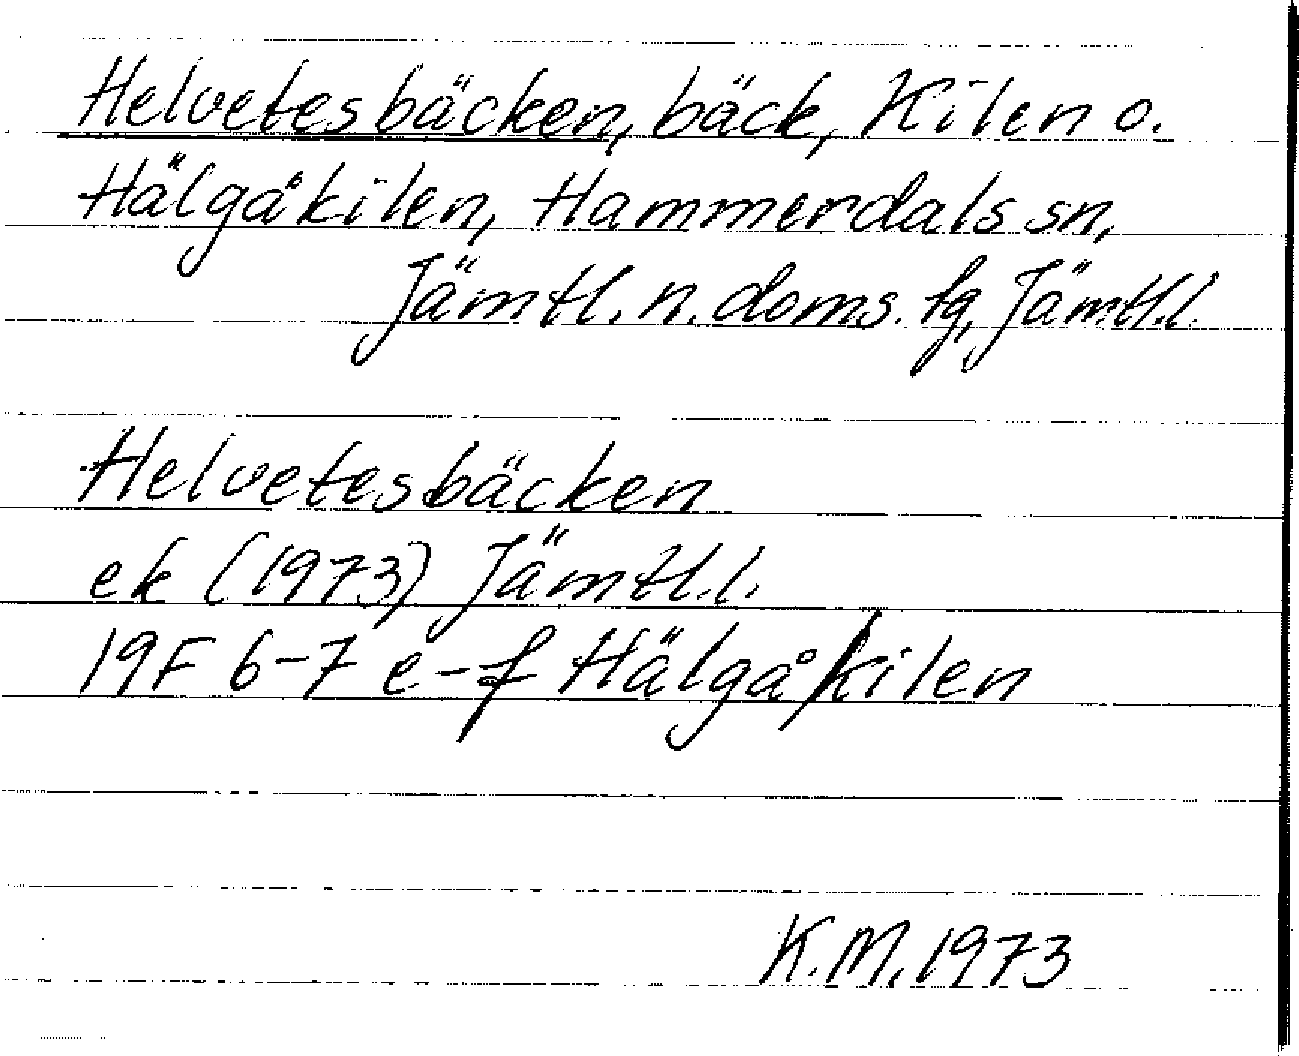 Helvetesbäcken, bäck, Kilen o.
Hälgåkilen, Hammerdals sn,
Jämtl. n. doms. fg, Jämtl.l.
Helvetesbäcken
ek (1973) Jämtl.l.
19F 6-7 e-f Hälgå/kilen
K.M. 1973